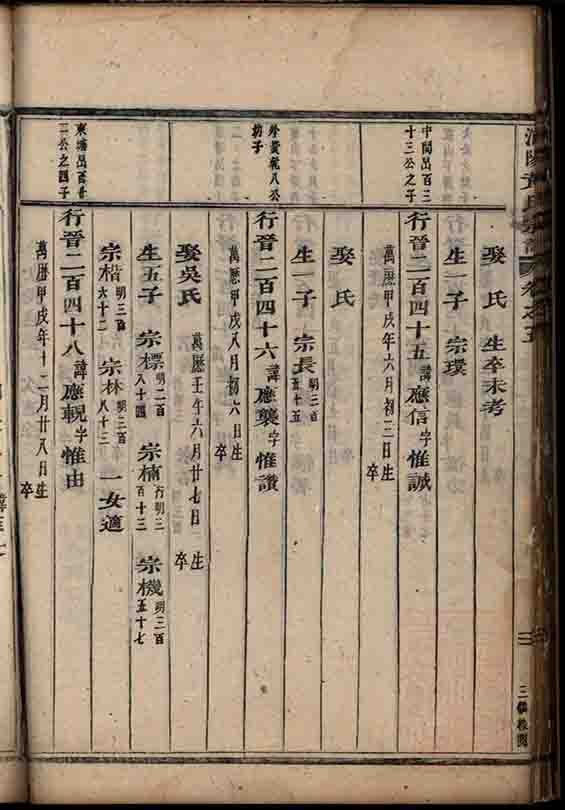 黃氏宗譜 卷之五
三
娶 氏 生卒未考
生一子 宗環
中間出百三十三公之子
行晉二百四十五 諱應信 字惟誠
萬曆甲戌年六月初二日 生 卒
娶 氏
生一子 宗長 明三百五十五
行晉二百四十六 諱應襲 字惟讚
萬曆甲戌八月初六日 生 卒
娶吳氏 萬曆壬午六月廿七日 生 卒
生五子 宗標 明二百八十四 宗楠 行明三百十三 宗機 明三百五十七
宗楷 明三百六十二 宗林 明三百八十三 一女適
二公之四子
行晉二百四十八 諱應輗 字惟由
萬曆甲戌年十二月廿八日 生 卒